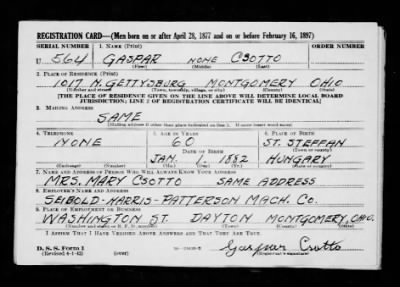 REGISTRATION CARD—(Men born on or after April 28, 1877 and on or before February 16, 1897)
SERIAL NUMBER 1. NAME (Print) ORDER NUMBER
U 564 GASPAR NONE CSOTTO
(First) (Middle) (Last)
2. PLACE OF RESIDENCE (Print)
1017 N. GETTYSBURG MONTGOMERY OHIO
(Number and street) (Town, township, village, or city) (County) (State)
[THE PLACE OF RESIDENCE GIVEN ON THE LINE ABOVE WILL DETERMINE LOCAL BOARD
JURISDICTION; LINE 2 OF REGISTRATION CERTIFICATE WILL BE IDENTICAL]
3. MAILING ADDRESS
SAME
(Mailing address if other than place indicated on line 2. If same insert word same)
4. TELEPHONE 5. AGE IN YEARS 6. PLACE OF BIRTH
NONE 60 ST. STEFFAN
DATE OF BIRTH (Town or county)
JAN. 1. 1882 HUNGARY
(Exchange) (Number) (Mo.) (Day) (Yr.) (State or country)
7. NAME AND ADDRESS OF PERSON WHO WILL ALWAYS KNOW YOUR ADDRESS
MRS. MARY CSOTTO SAME ADDRESS
8. EMPLOYER'S NAME AND ADDRESS
SEIBOLD-HARRIS-PATTERSON MACH. CO.
9. PLACE OF EMPLOYMENT OR BUSINESS
WASHINGTON ST. DAYTON MONTGOMERY, OHIO.
(Number and street or R. F. D. number) (Town) (County) (State)
I AFFIRM THAT I HAVE VERIFIED ABOVE ANSWERS AND THAT THEY ARE TRUE.
D. S. S. Form 1
(Revised 4-1-42) (over) Gaspar Csotto
(Registrant's signature)